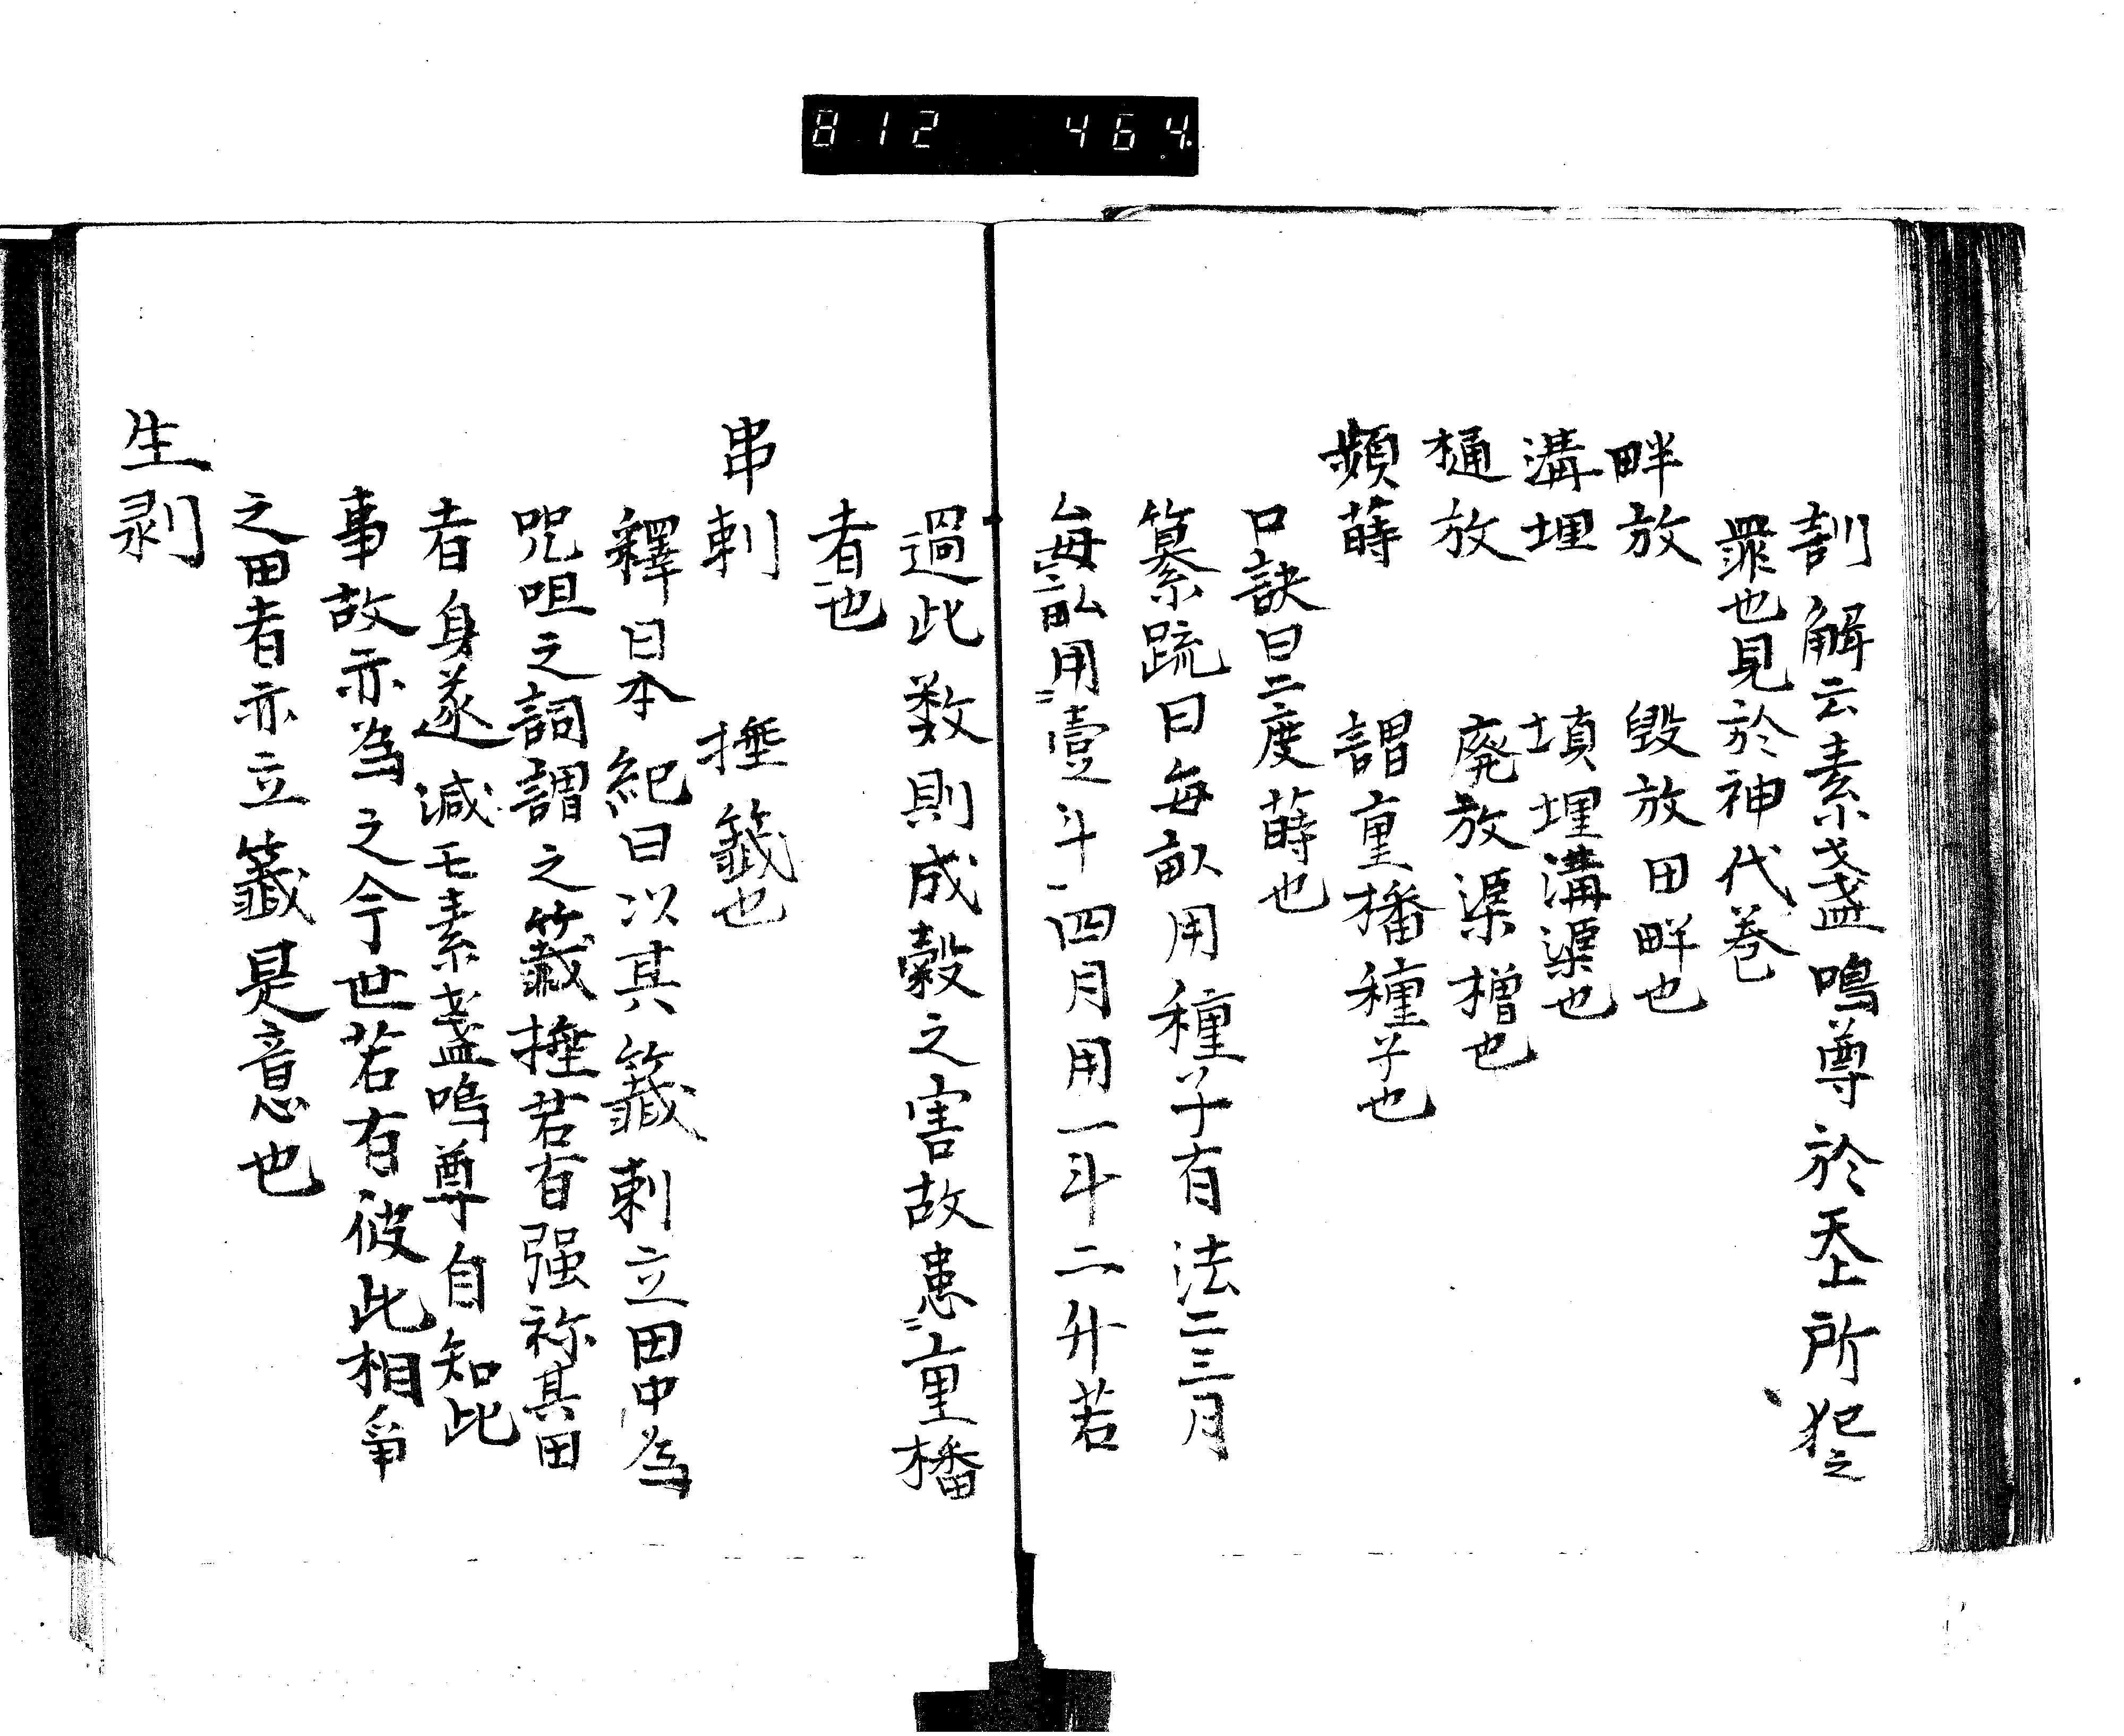 812 464
割解云素戔嗚尊於天上所犯之
罪也見於神代巻
畔放 毀放田畔也
溝埋 填埋溝渠也
樋放 廃放渠樋也
頻蒔 謂重播種子也
口訣曰二度蒔也
纂疏曰毎畝用種子有法二三月
毎畝用壹斗四月用一斗二升若
過此数則成穀之害故患重播
者也
串刺 㨝籤也
釋日本紀曰以其籤刺立田中為
咒咀之詞謂之籤㨝若有强祢其田
者身遂滅亡素戔嗚尊自知此
事故亦為之今世若有彼此相爭
之田者亦立籤是意也
生剥